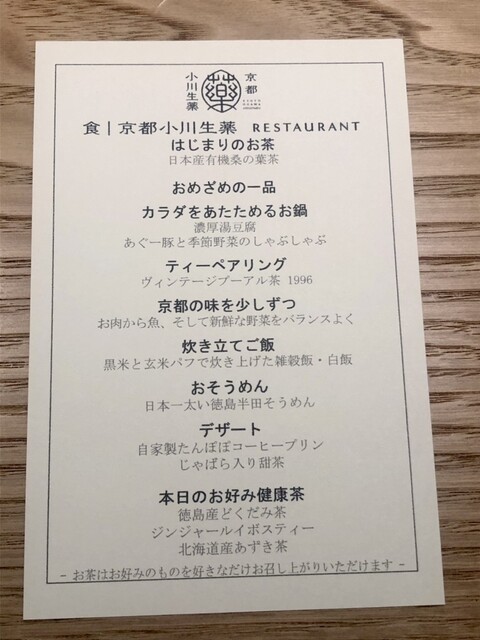 小川生薬
薬
京都
食|京都小川生薬 RESTAURANT
はじまりのお茶
日本産有機桑の葉茶
おめざめの一品
カラダをあたためるお鍋
濃厚湯豆腐
あぐー豚と季節野菜のしゃぶしゃぶ
ティーペアリング
ヴィンテージプーアル茶 1996
京都の味を少しずつ
お肉から魚、そして新鮮な野菜をバランスよく
炊き立てご飯
黒米と玄米パフで炊き上げた雑穀飯・白飯
おそうめん
日本一太い徳島半田そうめん
デザート
自家製たんぽぽコーヒープリン
じゃばら入り甜茶
本日のお好み健康茶
徳島産どくだみ茶
ジンジャールイボスティー
北海道産あずき茶
- お茶はお好みのものを好きなだけお召し上がりいただけます -